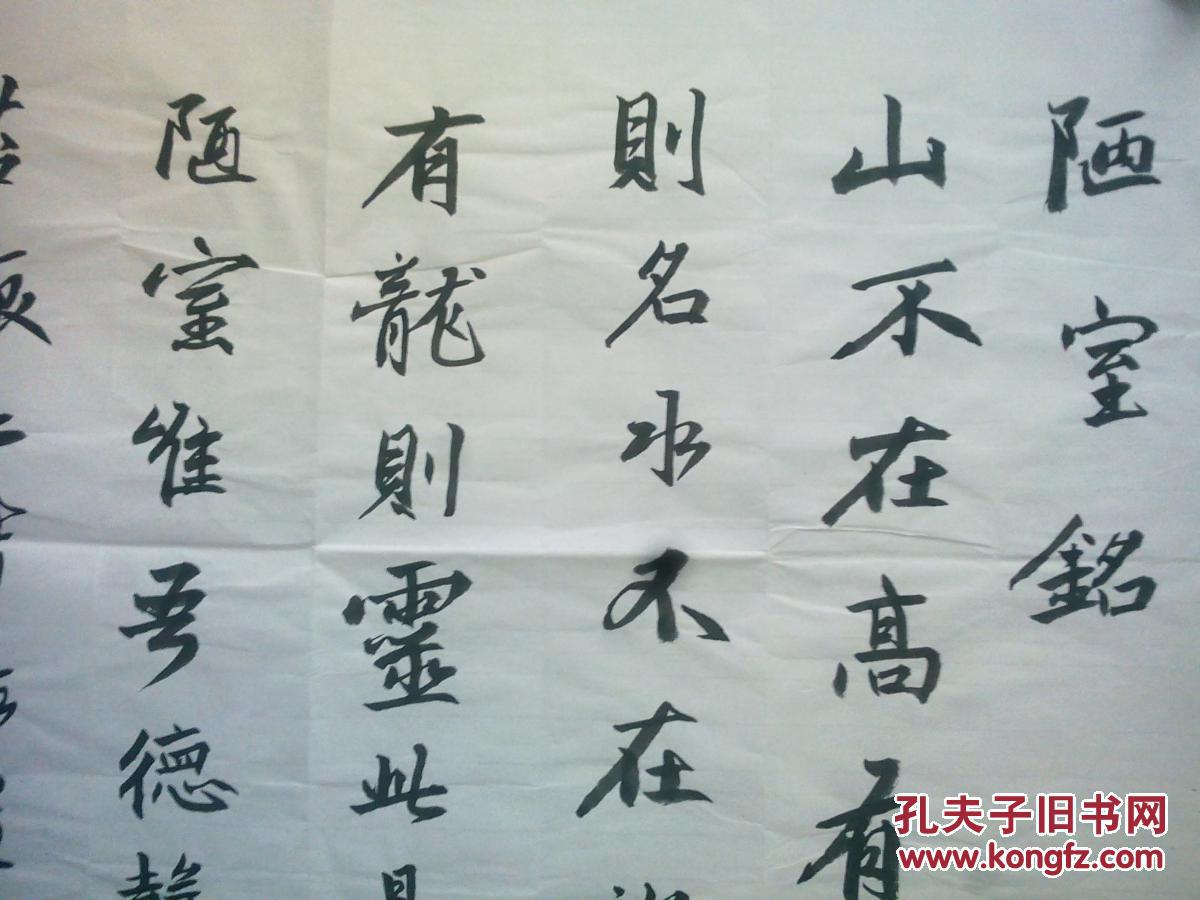 陋室銘
山不在高有
則名水不在
有龍則靈此
陋室唯吾德
孔夫子旧书网
www.kongfz.com